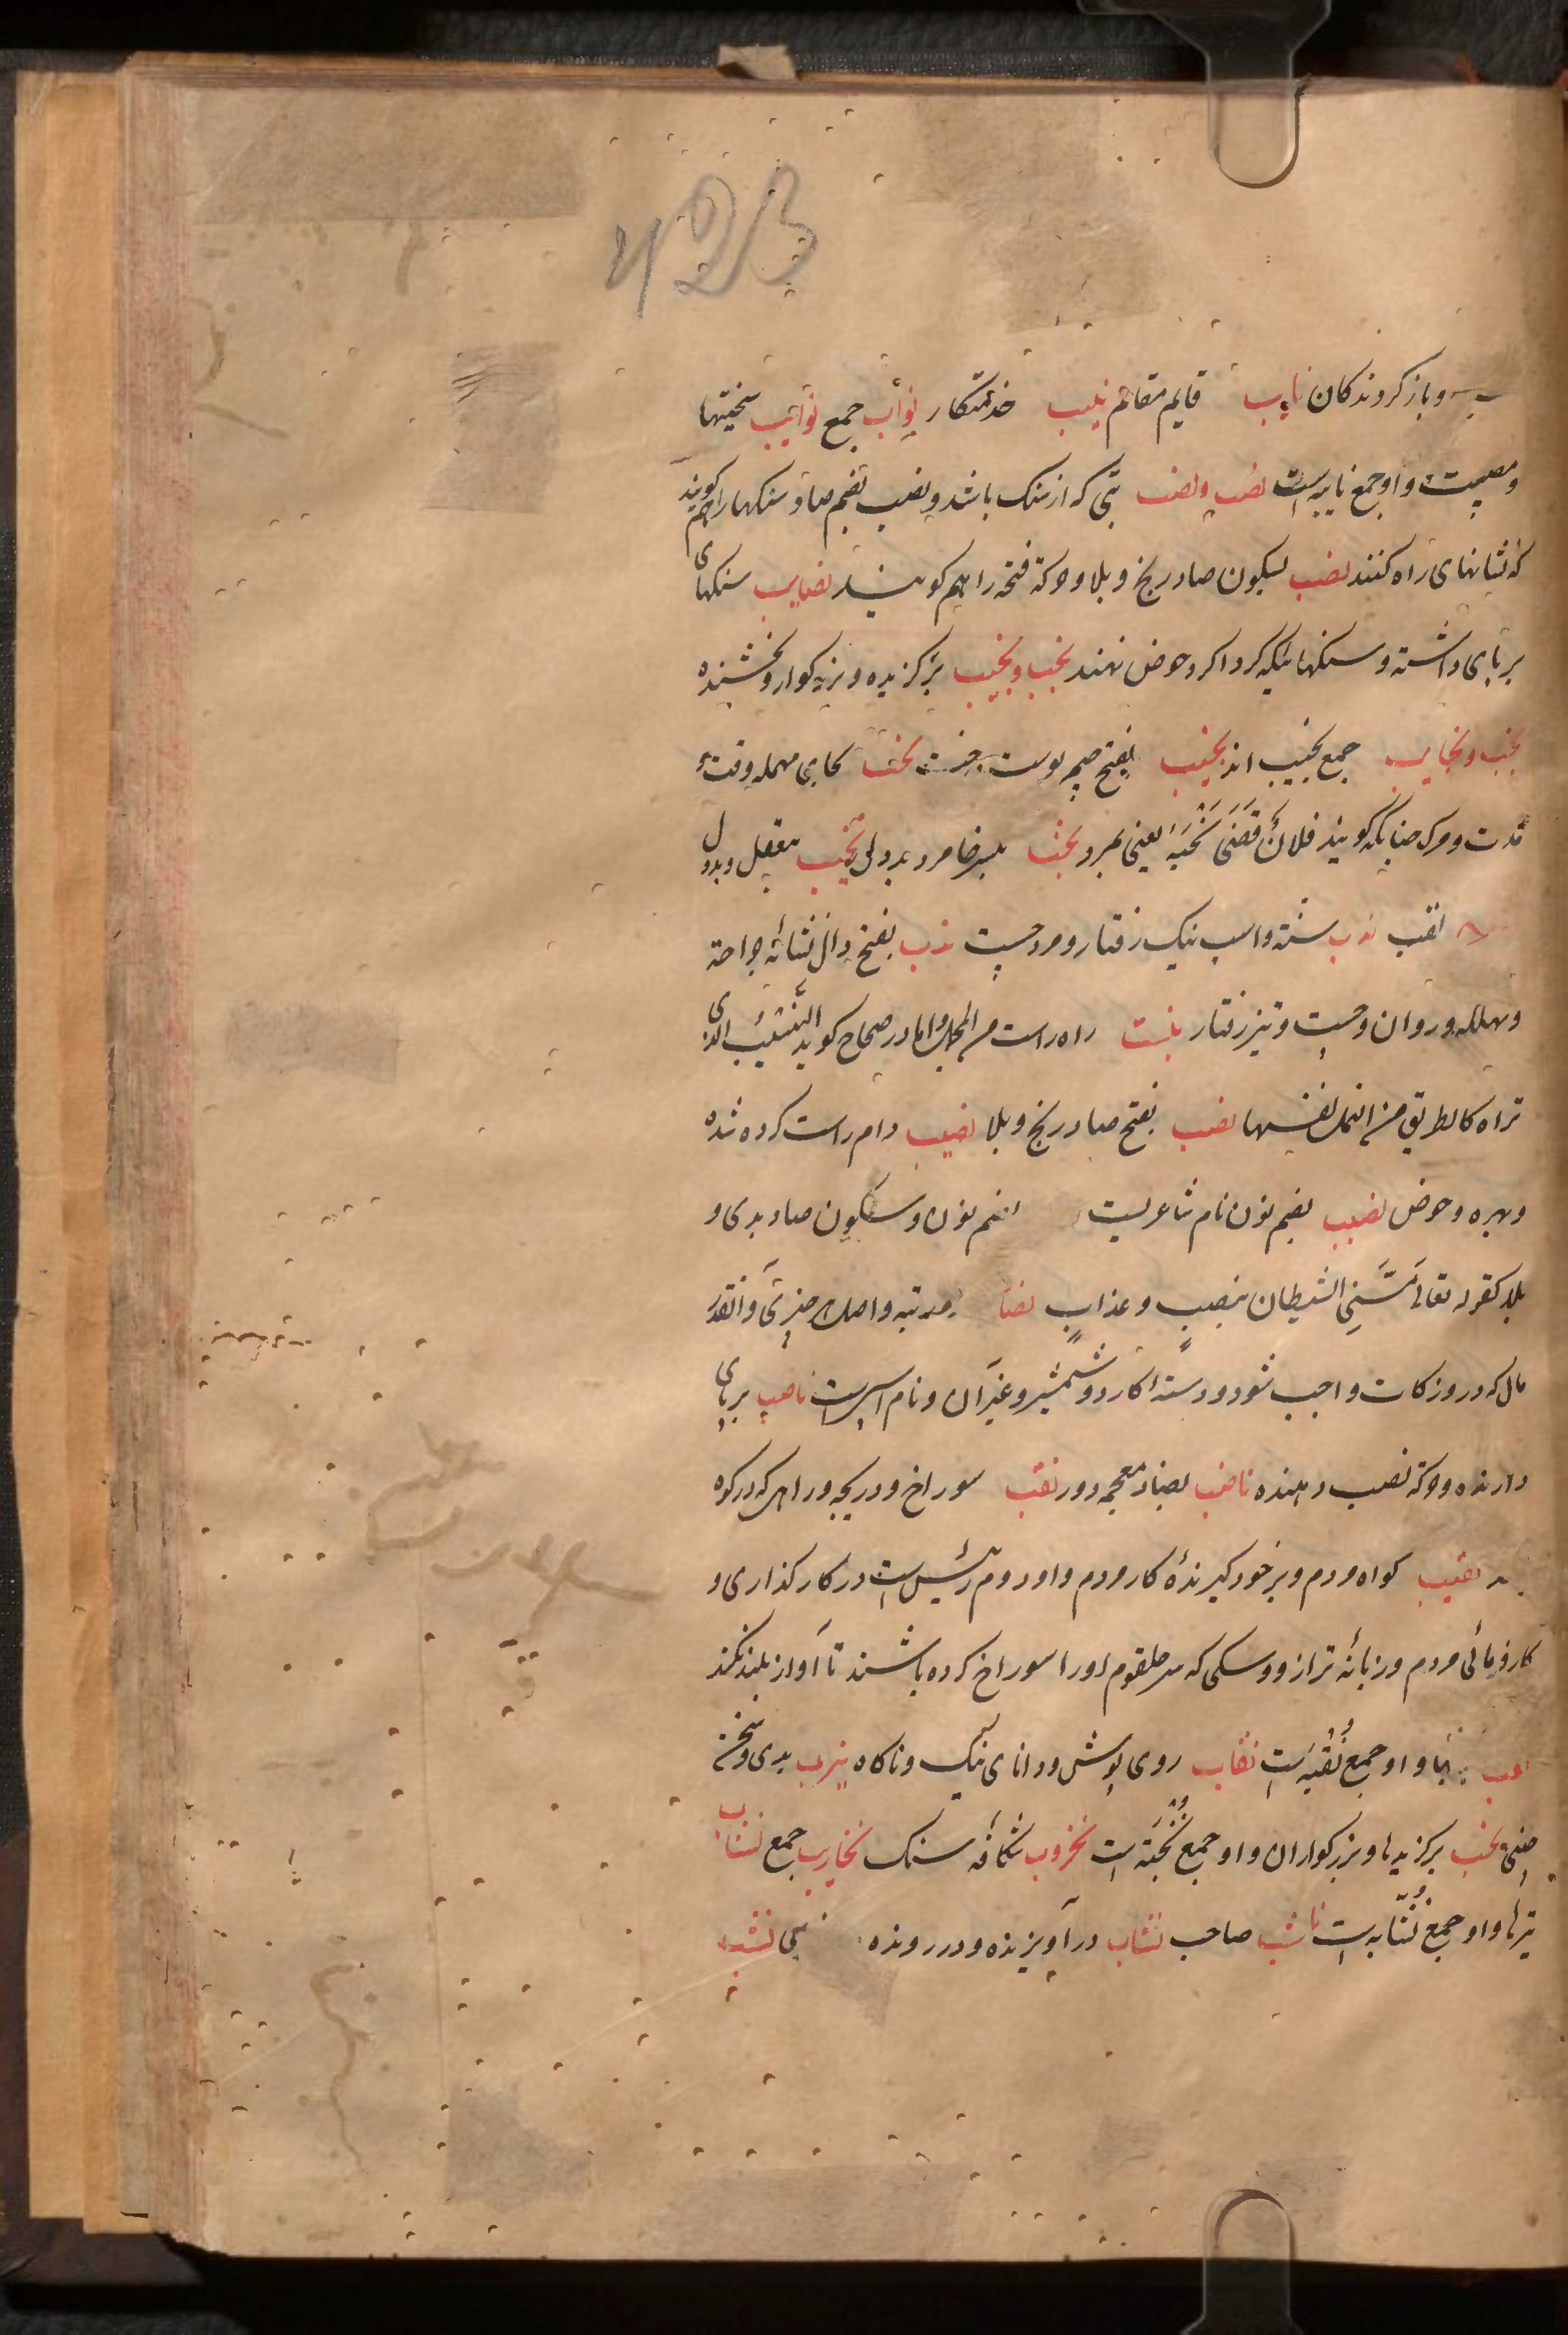 و باز کردوندکان نایب قایم مقام نایب خدمتکار نواب جمع نوایب سختیها
و مصیبت و او جمع نایبه است نصب و نصب بتی که از سنک باشد و نصب بضم صاد سنکها را هم کویند
که نشانهای راه کنند نصب بسکون صاد رنج و بلا و حرکة فتحه را هم کویند نصایب سنکهای
بر پای داشته و سنکها نیکه کرداکرد حوض نهند نجب و نجیب برکزیده و بزرکوار و بخشنده
نجب و نجایب جمع نجیب اند نجب بفتح جیم پوست درخت نحب بحای مهمله وقت و
مدت و مرک چنانکه کویند فلان قضی نحبه یعنی بمرد نخب بکسر خا مرد بددل نخیب بیعقل و بددل
نقب ندب شته و اسب نیک رفتار و مرد چست ندب بفتح دال نشانه جراحة
و مهلکه و روان و چست و تیز رفتار نیسب راه راست من المجمل و اما در صحاح کوید النیسب الذی
تراه کالطریق من النمل نفسها نصب بفتح صاد رنج و بلا نصیب دام راست کرده شده
و بهره و حوض نصیب بضم نون نام شاعریست بضم نون و سکون صاد بدی و
بلا کقوله تعالی مسنی الشیطان بنصب و عذاب نصاب مرتبه و اصل چیزی و آنقدر
مال که در وزکات واجب شود و دسته کارد و شمشیر و غیر آن و نام اسپیست ناصب بر پای
دارنده و حرکة نصب دهنده ناضب بضاد معجمه دور نقب سوراخ و دریچه و راهی که در کوه
نقیب کواه مردم و بر خود کیرندهٔ کار مردم و او دوم رئیس است در کار کذاری و
کارفرمائی مردم و زبانه ترازو و سکی که سر حلقوم او را سوراخ کرده باشند تا آواز بلند نکند
نقب و او جمع نقبه است نقاب روی پوش و دانای نیک و ناکاه نیرب بدی و سخن
چینی نخب برکزیدها و بزرکواران و او جمع نخبة است نخروب شکافه سنک نخاریب جمع نشاب
تیرها و او جمع نشابه است ناشب صاحب نشاب درآویزنده و در رونده نشب